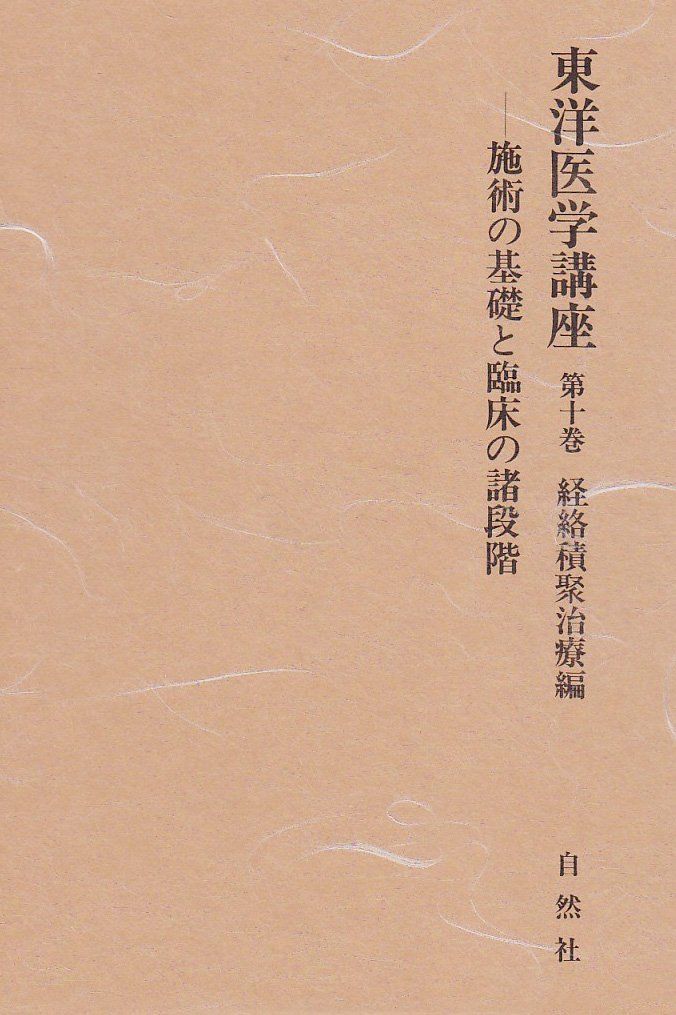 東洋医学講座 第十巻 経絡積聚治療編
―施術の基礎と臨床の諸段階
自然社